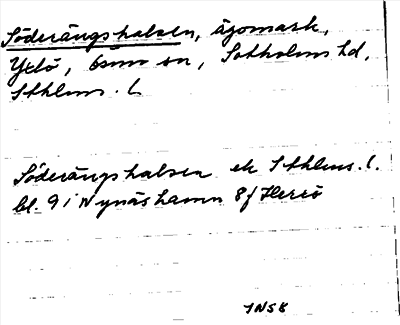 Söderängshalsen, ägomark,
Yxlö, Ösmo sn, Sotholms hd,
Sthlms. l.
Söderängshalsen ek Sthlms. l.
bl. 9 i Nynäshamn 8f Herrö
INSK